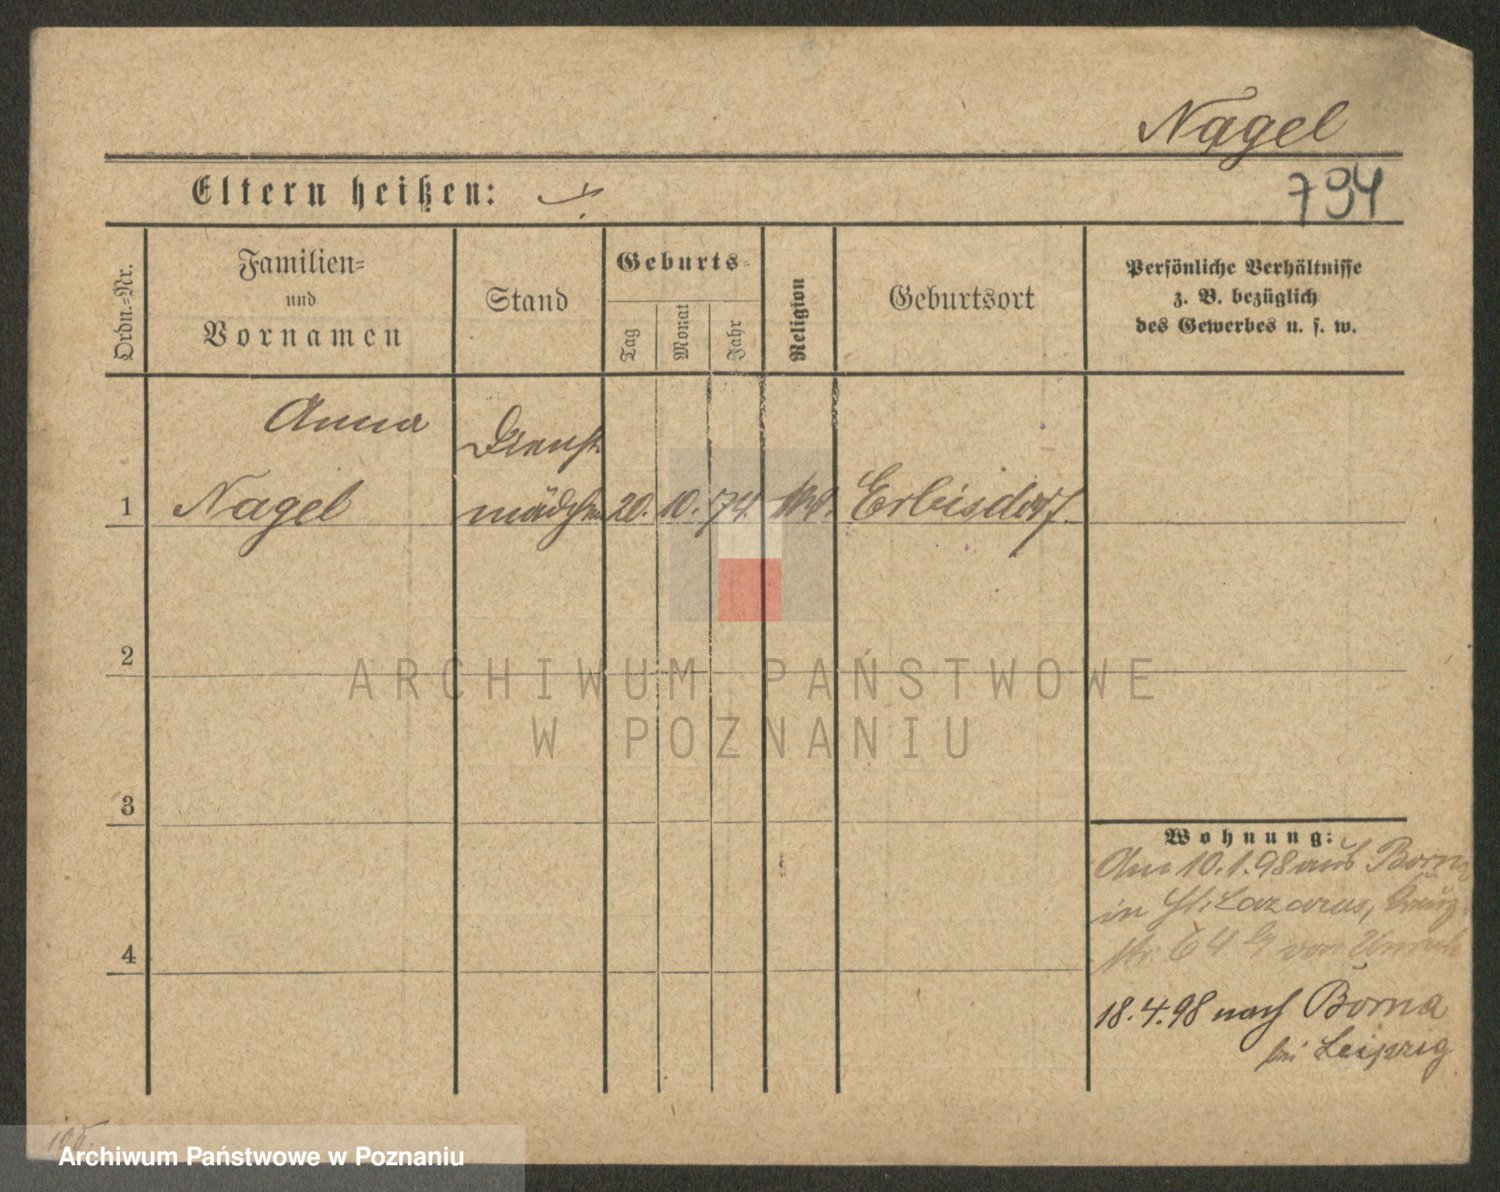 Nagel
Eltern heißen: ./.
794
Ordn.=Nr.
Familien=
und
Vornamen
Stand
Geburts=
Tag
Monat
Jahr
Religion
Geburtsort
Persönliche Verhältnisse
z. B. bezüglich
des Gewerbes u. s. w.
Anna
Dienst
1 Nagel mädchen 20. 10. 74. Erbisdorf.
2
ARCHIWUM PAŃSTWOWE
W POZNANIU
3
Wohnung:
Am 10.1.98 aus Borna
in St. Lazarus,
str. 64 von Unruh
4
18.4.98 nach Borna
bei Leipzig
105.
Archiwum Państwowe w Poznaniu